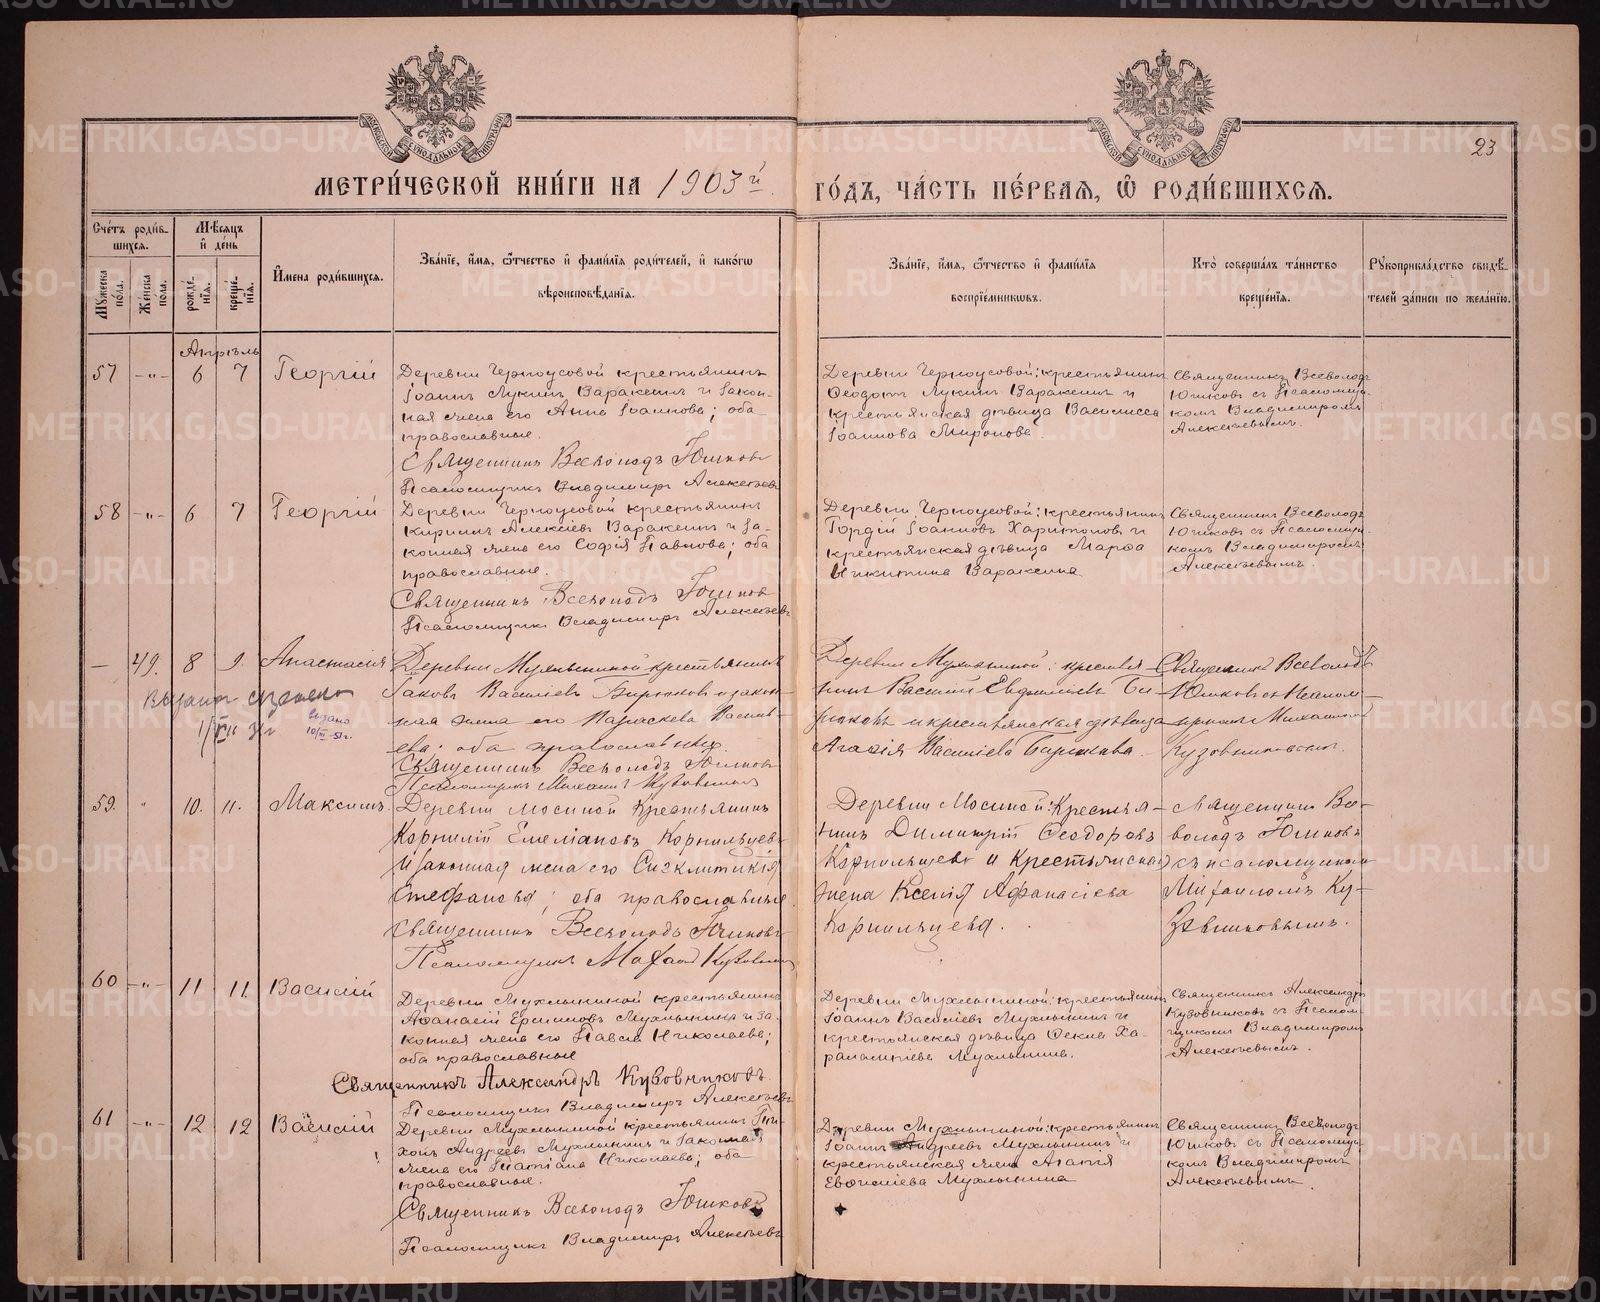 МЕТРИ́ЧЕСКОЙ КНИ́ГИ НА 1903й
ГО́ДЪ, ЧА́СТЬ ПЕ́РВАЯ, Ѡ РОДИ́ВШИХСЯ.
23
Сче́тъ роди́в-
шихся.
Мѣсяцъ
и день
Мужеска по́ла.
Же́нска по́ла.
рожде́-нія.
креще́-нія.
И́мена роди́вшихся.
Зва́ніе, и́мя, ѻ́тчество и фами́лія роди́телей, и како́гѡ
вѣроисповѣ́данія.
Зва́ніе, и́мя, ѻ́тчество и фами́лія
воспріе́мниковъ.
Кто̀ соверша́лъ та́инство
креще́нія.
Рукоприкла́дство свидѣ́-
телей за́писи по жела́нію.
Апрѣль
57 -"- 6 7 Георгій
Деревни Черноусовой крестьянинъ
Іоаннъ Лукинъ Варакинъ и закон-
ная жена его Анна Іоаннова; оба
православные.
Священникъ Всеволодъ Юшковъ
Псаломщикъ Владимиръ Алексѣевъ
Деревни Черноусовой: крестьянинъ
Ѳеодотъ Лукинъ Варакинъ и
крестьянская дѣвица Васисса
Іоаннова Миронова.
Священникъ Всеволодъ
Юшковъ съ Псаломщи-
комъ Владимиромъ
Алексѣевымъ.
58 -"- 6 7 Георгій
Деревни Черноусовой крестьянинъ
Кириллъ Алексѣевъ Варакинъ и за-
конная жена его Софія Павлова; оба
православные.
Священникъ Всеволодъ Юшковъ
Псаломщикъ Владимиръ Алексѣевъ
Деревни Черноусовой: крестьянинъ
Гордій Іоанновъ Харитоновъ и
крестьянская дѣвица Марѳа
Никитина Варакина
Священникъ Всеволодъ
Юшковъ съ Псаломщи-
комъ Владимиромъ
Алексѣевымъ.
— 49. 8 9. Анастасія
Деревни Мухлыниной крестьянинъ
Іаковъ Василіевъ Бирюковъ и закон-
ная жена его Параскева Василь-
ева: оба православные.
Священникъ Всеволодъ Юшковъ
Псаломщикъ Михаилъ Кузовниковъ
Деревни Мухлыниной: крестья-
нинъ Василій Евфиміевъ Би-
рюковъ и крестьянская дѣвица
Агафія Василіева Бирюкова.
Священникъ Всеволодъ
Юшковъ съ Псалом-
щикомъ Михаиломъ
Кузовниковымъ.
Выдано
выдано
59. " 10. 11. Максимъ.
Деревни Мосиной Крестьянинъ
Корнилій Емеліановъ Корнильцевъ
и законная жена его Сигклитикія
Стефанова; оба православные
Священникъ Всеволодъ Юшковъ
Псаломщикъ Михаилъ Кузовниковъ
Деревни Мосиной: Крестья-
нинъ Димитрій Ѳеодоровъ
Корнильцевъ и Крестьянская
жена Ксенія Афанасіева
Корнильцева.
Священникъ Все-
володъ Юшковъ
съ псаломщикомъ
Михаиломъ Ку-
зовниковымъ.
60 -"- 11 11. Василій
Деревни Мухлыниной крестьянинъ
Аѳанасій Ерминовъ Мухлынинъ и за-
конная жена его Павла Николаева;
оба православные
Священникъ Александръ Кузовниковъ.
Псаломщикъ Владимиръ Алексѣевъ
Деревни Мухлыниной: крестьянинъ
Іоаннъ Василіевъ Мухлынинъ и
крестьянская дѣвица Ѳекла Ха-
рлампіева Мухлынина.
Священникъ Александръ
Кузовниковъ съ Псалом-
щикомъ Владимиромъ
Алексѣевымъ.
61 -"- 12 12 Василій
Деревни Мухлыниной крестьянинъ Ти-
хонъ Андреевъ Мухлынинъ и законная
жена его Татіана Николаева; оба
православные.
Священникъ Всеволодъ Юшковъ
Псаломщикъ Владимиръ Алексѣевъ
Деревни Мухлыниной: крестьянинъ
Іоаннъ Андреевъ Мухлынинъ и
крестьянская жена Агапія
Евфиміева Мухлынина
Священникъ Всеволодъ
Юшковъ съ Псаломщи-
комъ Владимиромъ
Алексѣевымъ.
METRIKI.GASO-URAL.RU